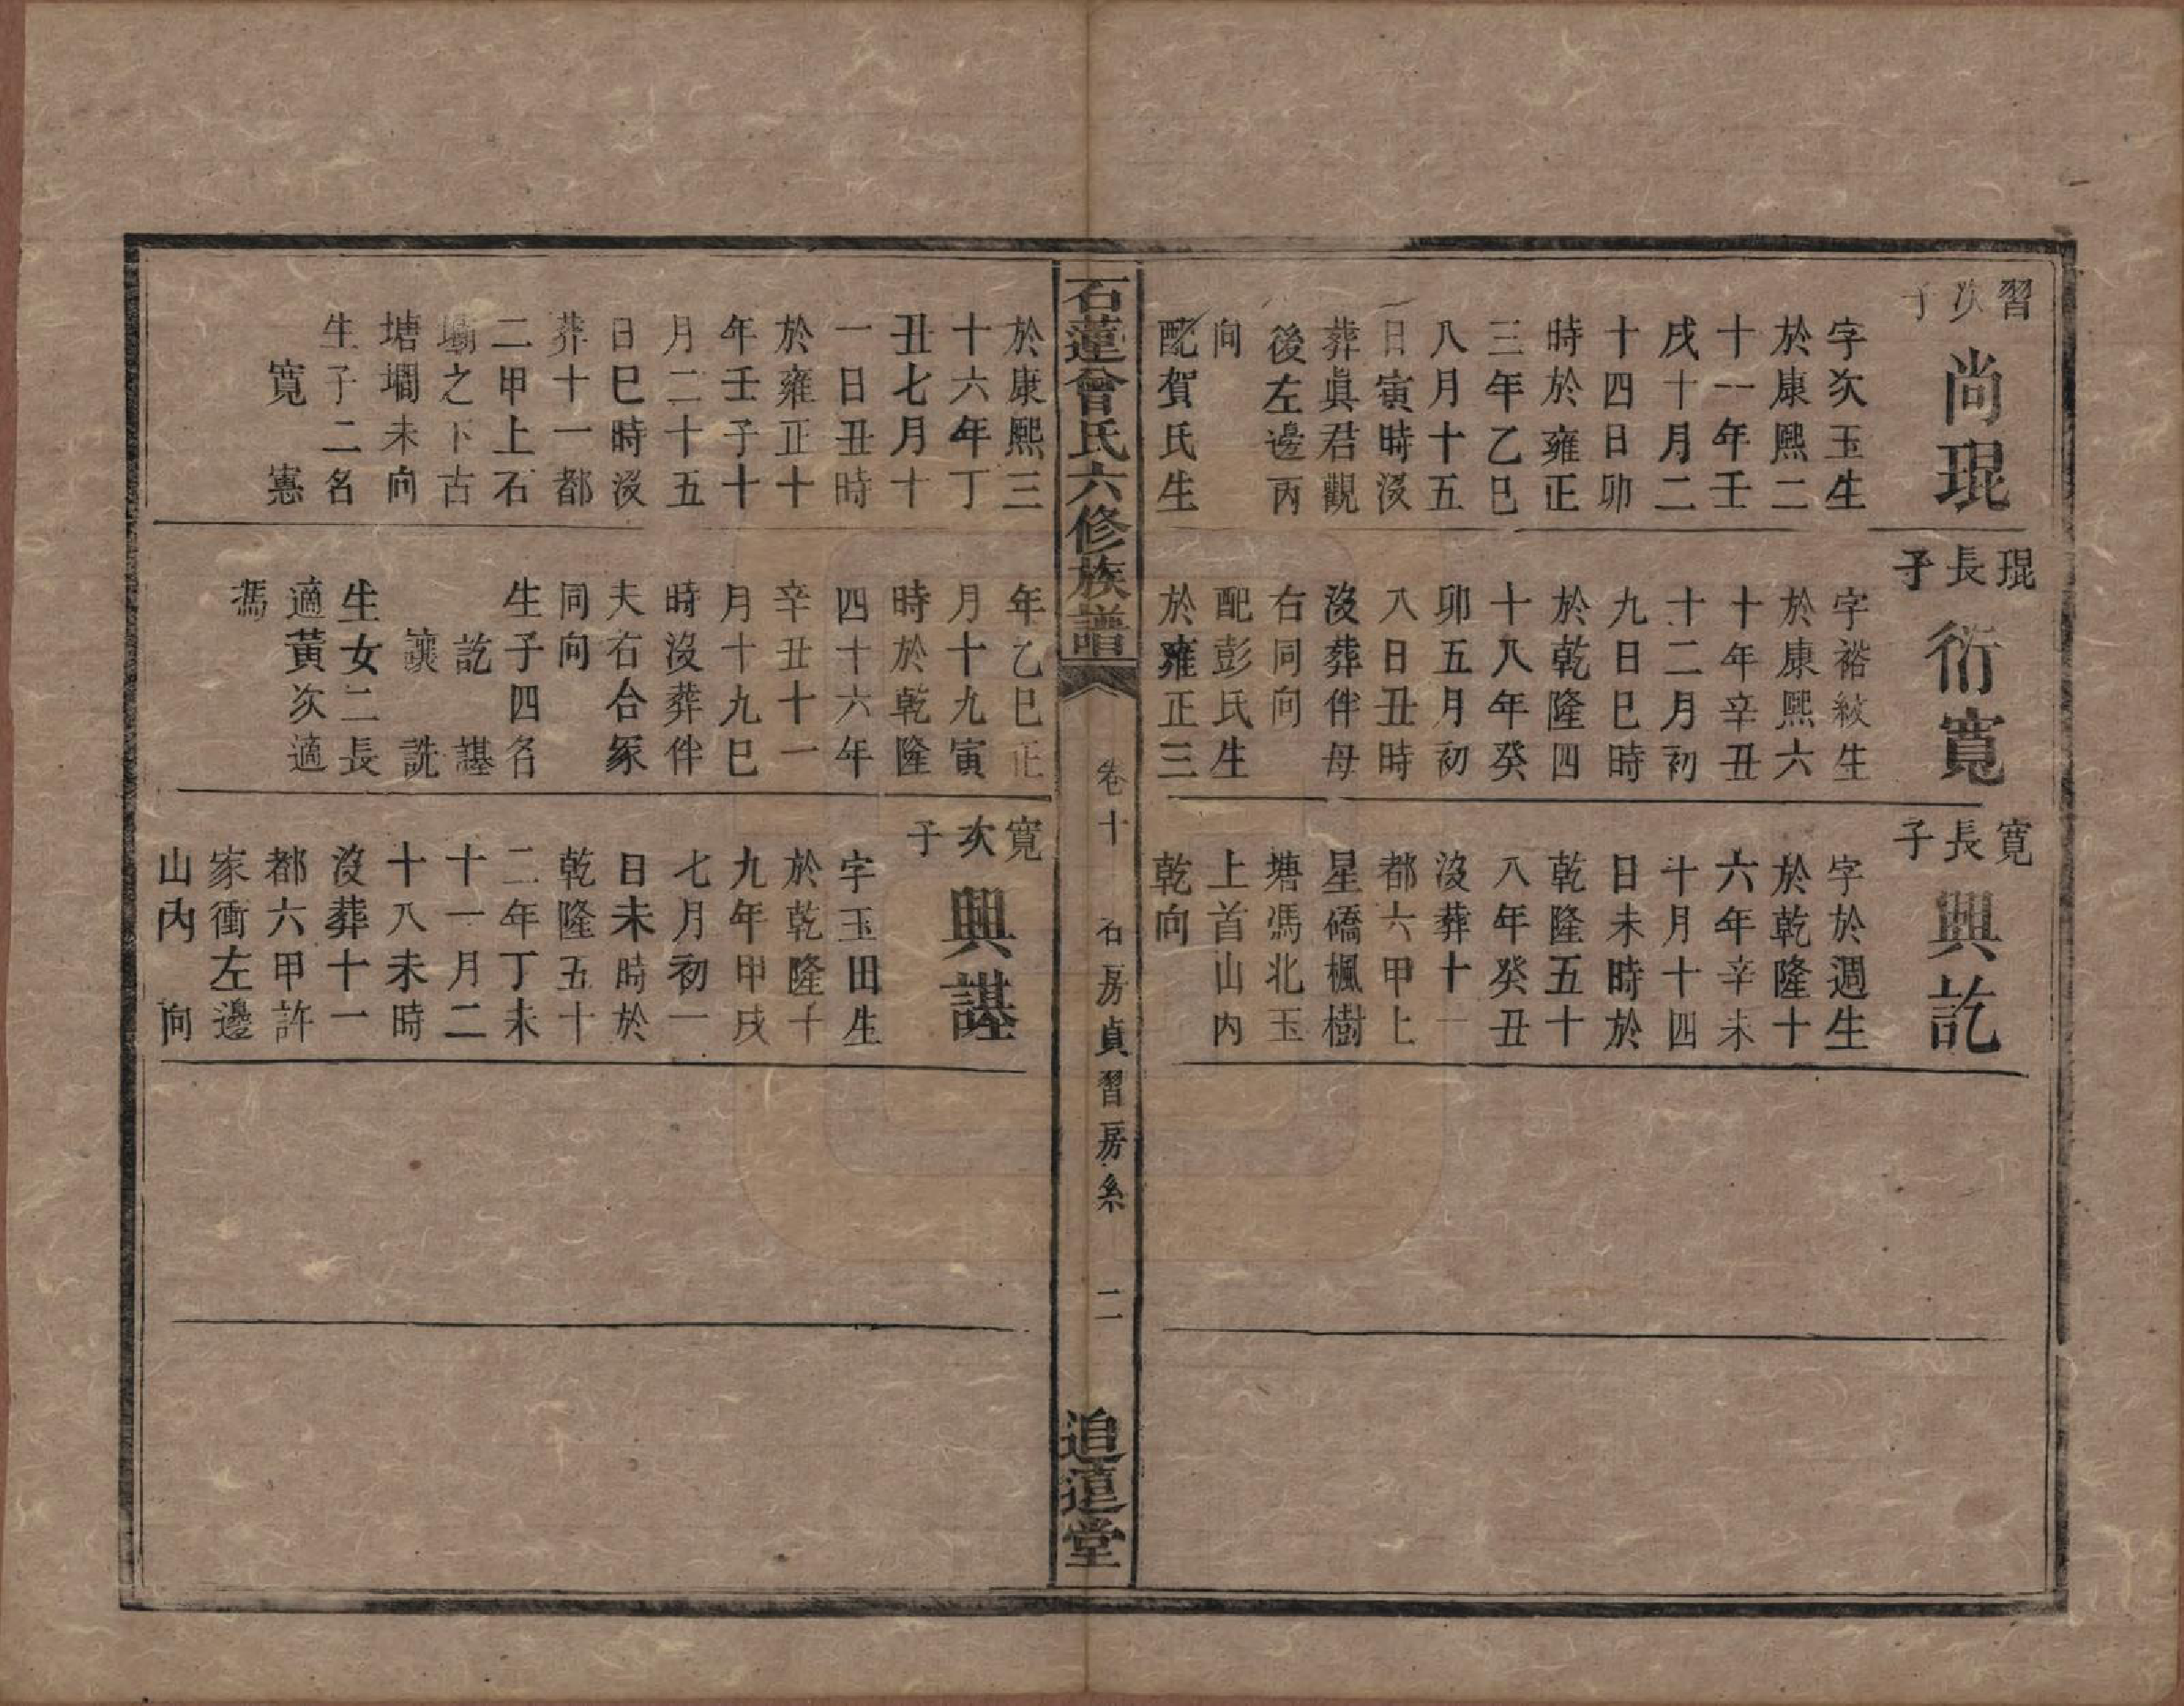 習次子
尚琨
字次玉生
於康熙二
十一年壬
戌十月二
十四日卯
時於雍正
三年乙巳
八月十五
日寅時沒
葬眞君觀
後左邊丙
向
配賀氏生
琨長子
衍寬
字裕紋生
於康熙六
十年辛丑
十二月初
九日巳時
於乾隆四
十八年癸
卯五月初
八日丑時
沒葬伴母
右同向
配彭氏生
於雍正三
寬長子
興訖
字於週生
於乾隆十
六年辛未
十月十四
日未時於
乾隆五十
八年癸丑
沒葬十一
都六甲上
星礄楓樹
塘馮北玉
上首山內
乾向
石蓮曾氏六修族譜
卷十
石房貞習房系
二
追遠堂
於康熙三
十六年丁
丑七月十
一日丑時
於雍正十
年壬子十
月二十五
日巳時沒
葬十一都
二甲上石
塌之下古
塘墹未向
生子二名
寬 憲
年乙巳正
月十九寅
時於乾隆
四十六年
辛丑十一
月十九巳
時沒葬伴
夫右合冢
同向
生子四名
訖 諶
讓 詵
生女二長
適黃次適
馮
寬次子
興諶
字玉田生
於乾隆十
九年甲戌
七月初一
日未時於
乾隆五十
二年丁未
十一月二
十八未時
沒葬十一
都六甲許
家衝左邊
山內 向